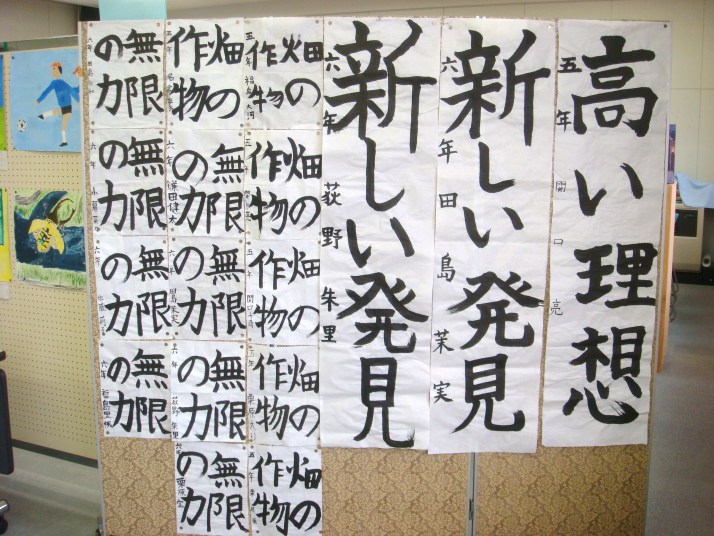 高い理想
五年 関口亮
新しい発見
六年 田島茉実
新しい発見
六年 荻野朱里
畑の
作物
五年
畑の
作物
畑の
作物
五年
畑の
作物
五年
畑の
作物
五年
畑の
作物
無限
の力
六年 田健太
無限
の力
六年 田島茉実
無限
の力
六年 荻野朱里
無限
の力
六年 栗原
無限
の力
六年
無限
の力
六年
無限
の力
六年
無限
の力
六年 福島里